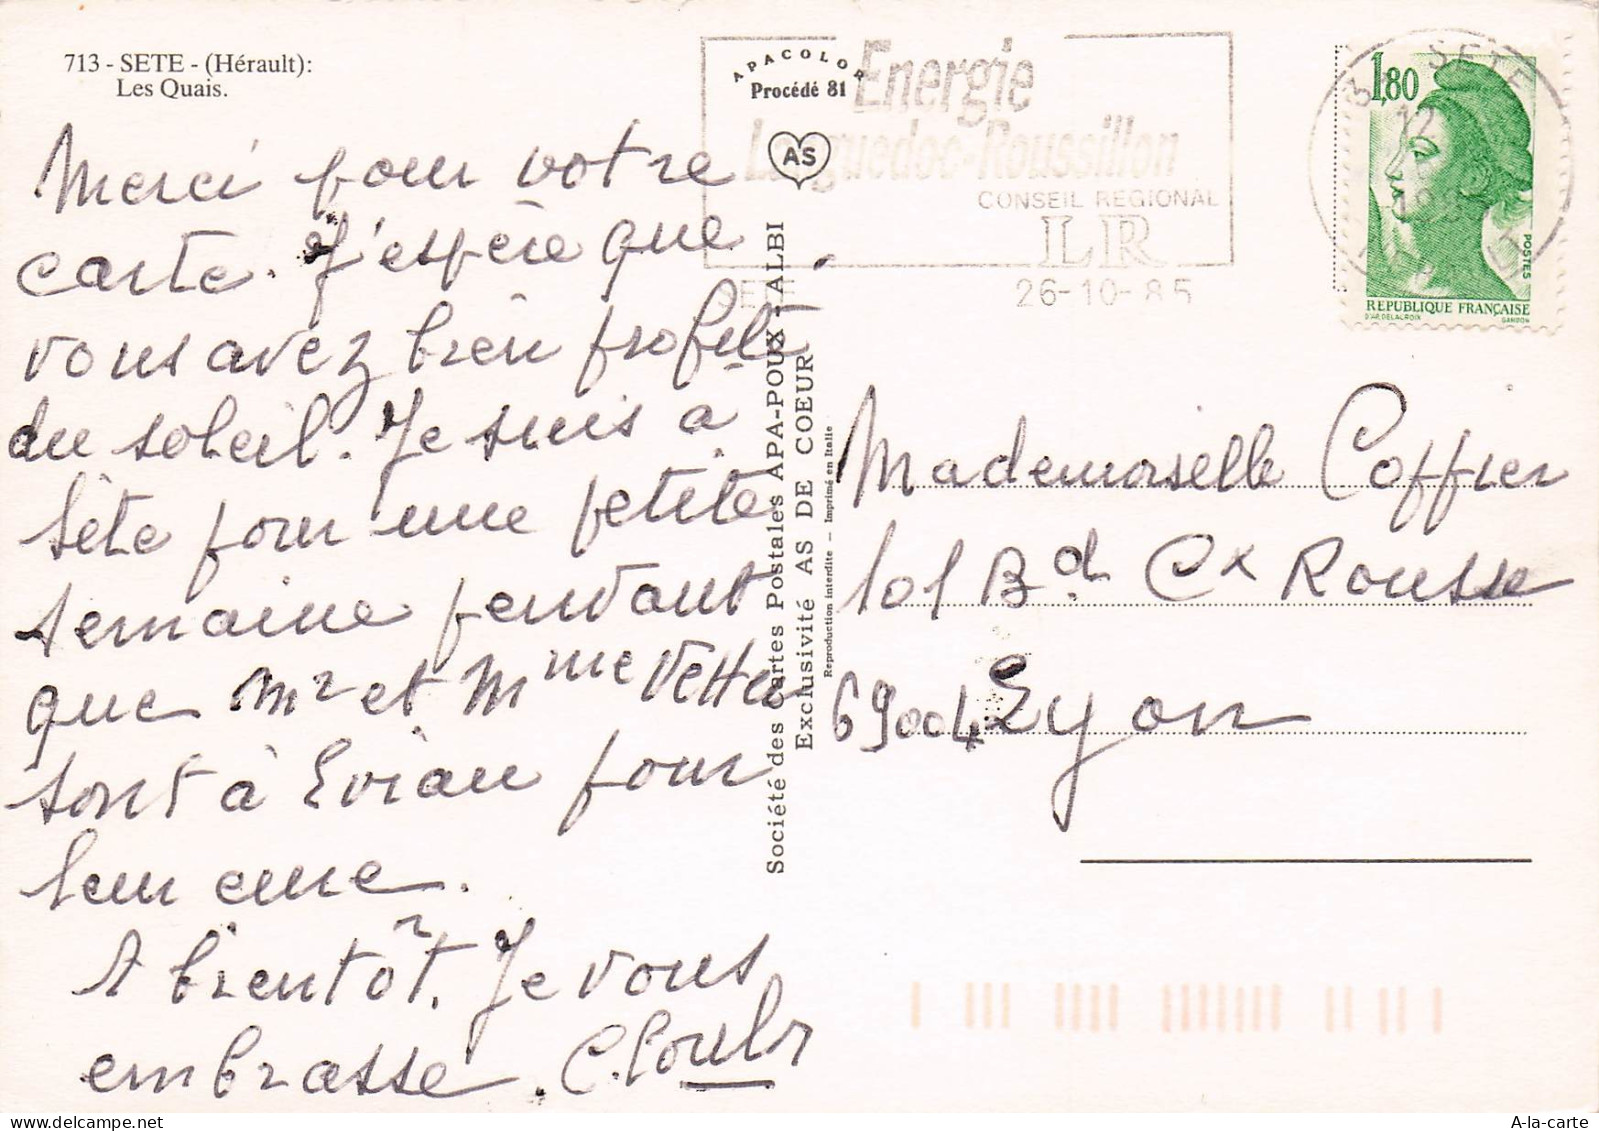 713 - SETE - (Hérault):
Les Quais.
APACOLOR
Procédé 81
AS
Energie
Languedoc-Roussillon
CONSEIL REGIONAL
LR
SETE
26-10-85
SETE
1,80
POSTES
REPUBLIQUE FRANÇAISE
D'AP. DELACROIX
GANDON
Merci pour votre
carte. J'espère que
vous avez bien profité
du soleil. Je suis à
Sète pour une petite
semaine pendant
que Mr et Mme Vetta
sont à Evian pour
leur cure.
A bientôt. Je vous
embrasse. C.
Société des Cartes Postales APA-POUX - ALBI
Exclusivité AS DE COEUR
Reproduction interdite — Imprimé en Italie
Mademoiselle Coffier
101 Bd Cx Rousse
69004 Lyon
A-la-carte